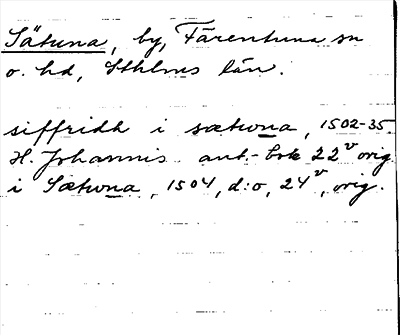 Sätuna, by, Färentuna sn
o. hd, Sthlms län.
siffridh i sætuna, 1502-35
H. Johannis ant.-bok 22v orig
i Sætuna, 1504, d:o, 24v, orig.